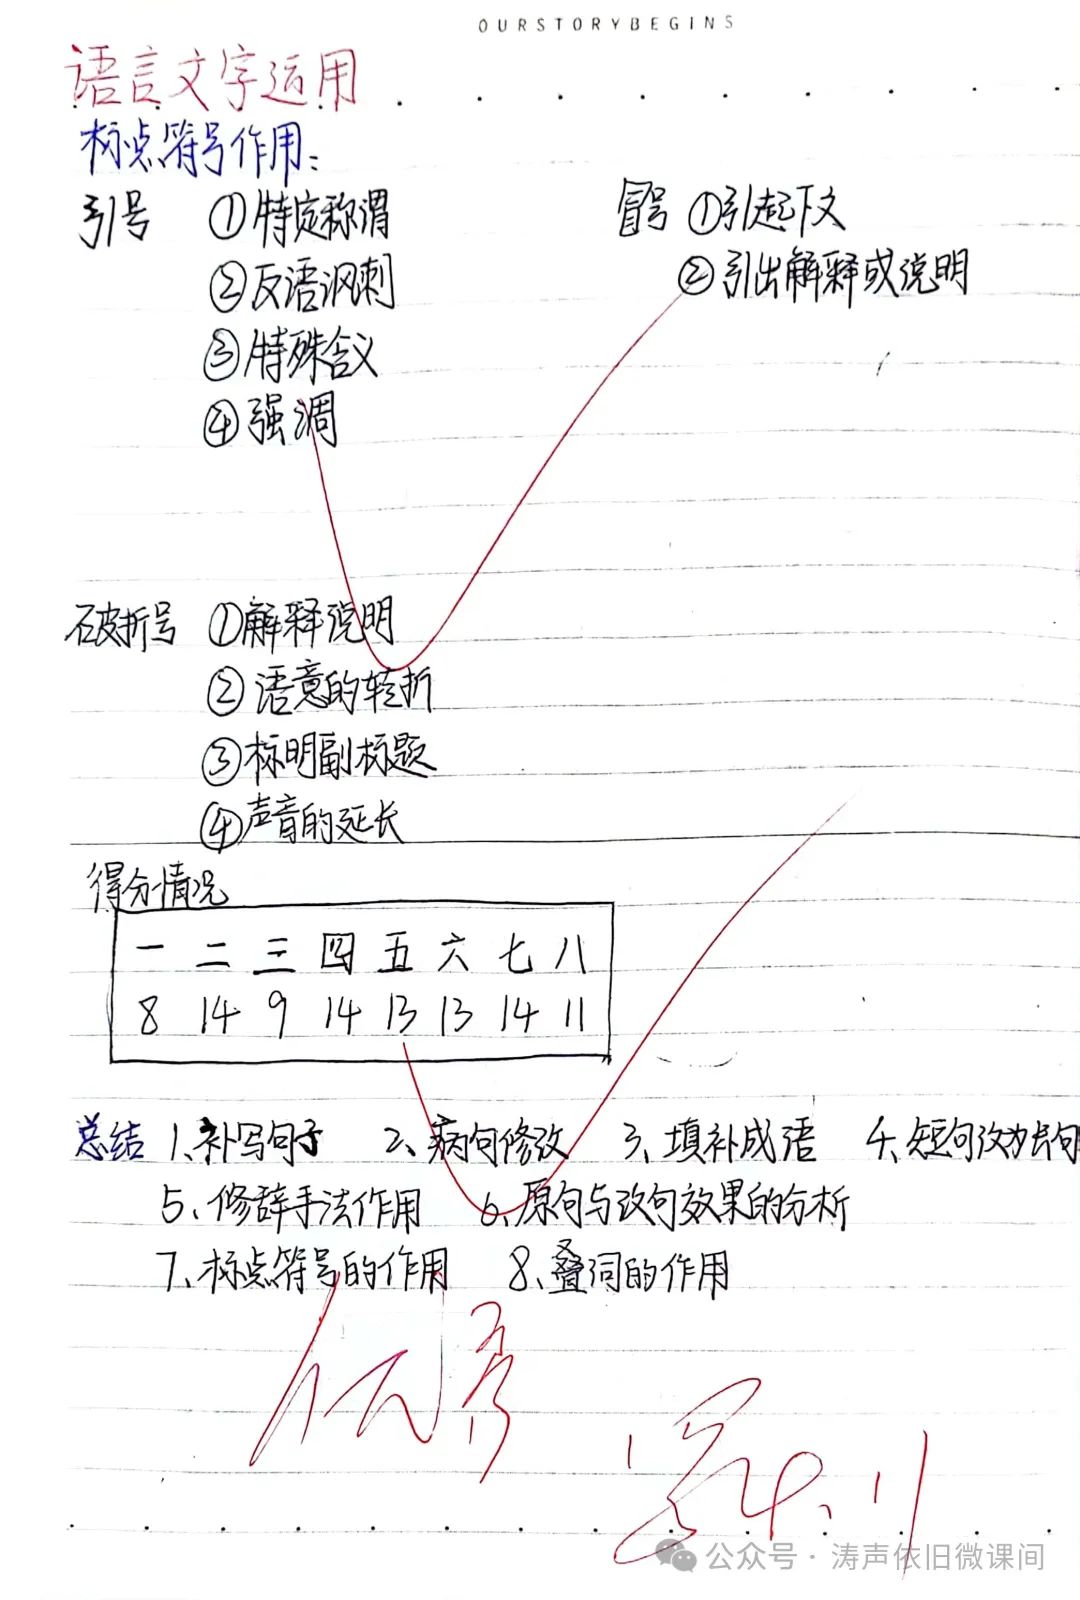 OURSTORYBEGINS
语言文字运用
标点符号作用:
引号 ①特定称谓 冒号 ①引起下文
②反语讽刺 ②引出解释或说明
③特殊含义
④强调
破折号 ①解释说明
②语意的转折
③标明副标题
④声音的延长
得分情况
一 二 三 四 五 六 七 八
8 14 9 14 13 13 14 11
总结 1、补写句子 2、病句修改 3、填补成语 4、短句改为长句
5、修辞手法作用 6、原句与改句效果的分析
7、标点符号的作用 8、叠词的作用
公众号·涛声依旧微课间